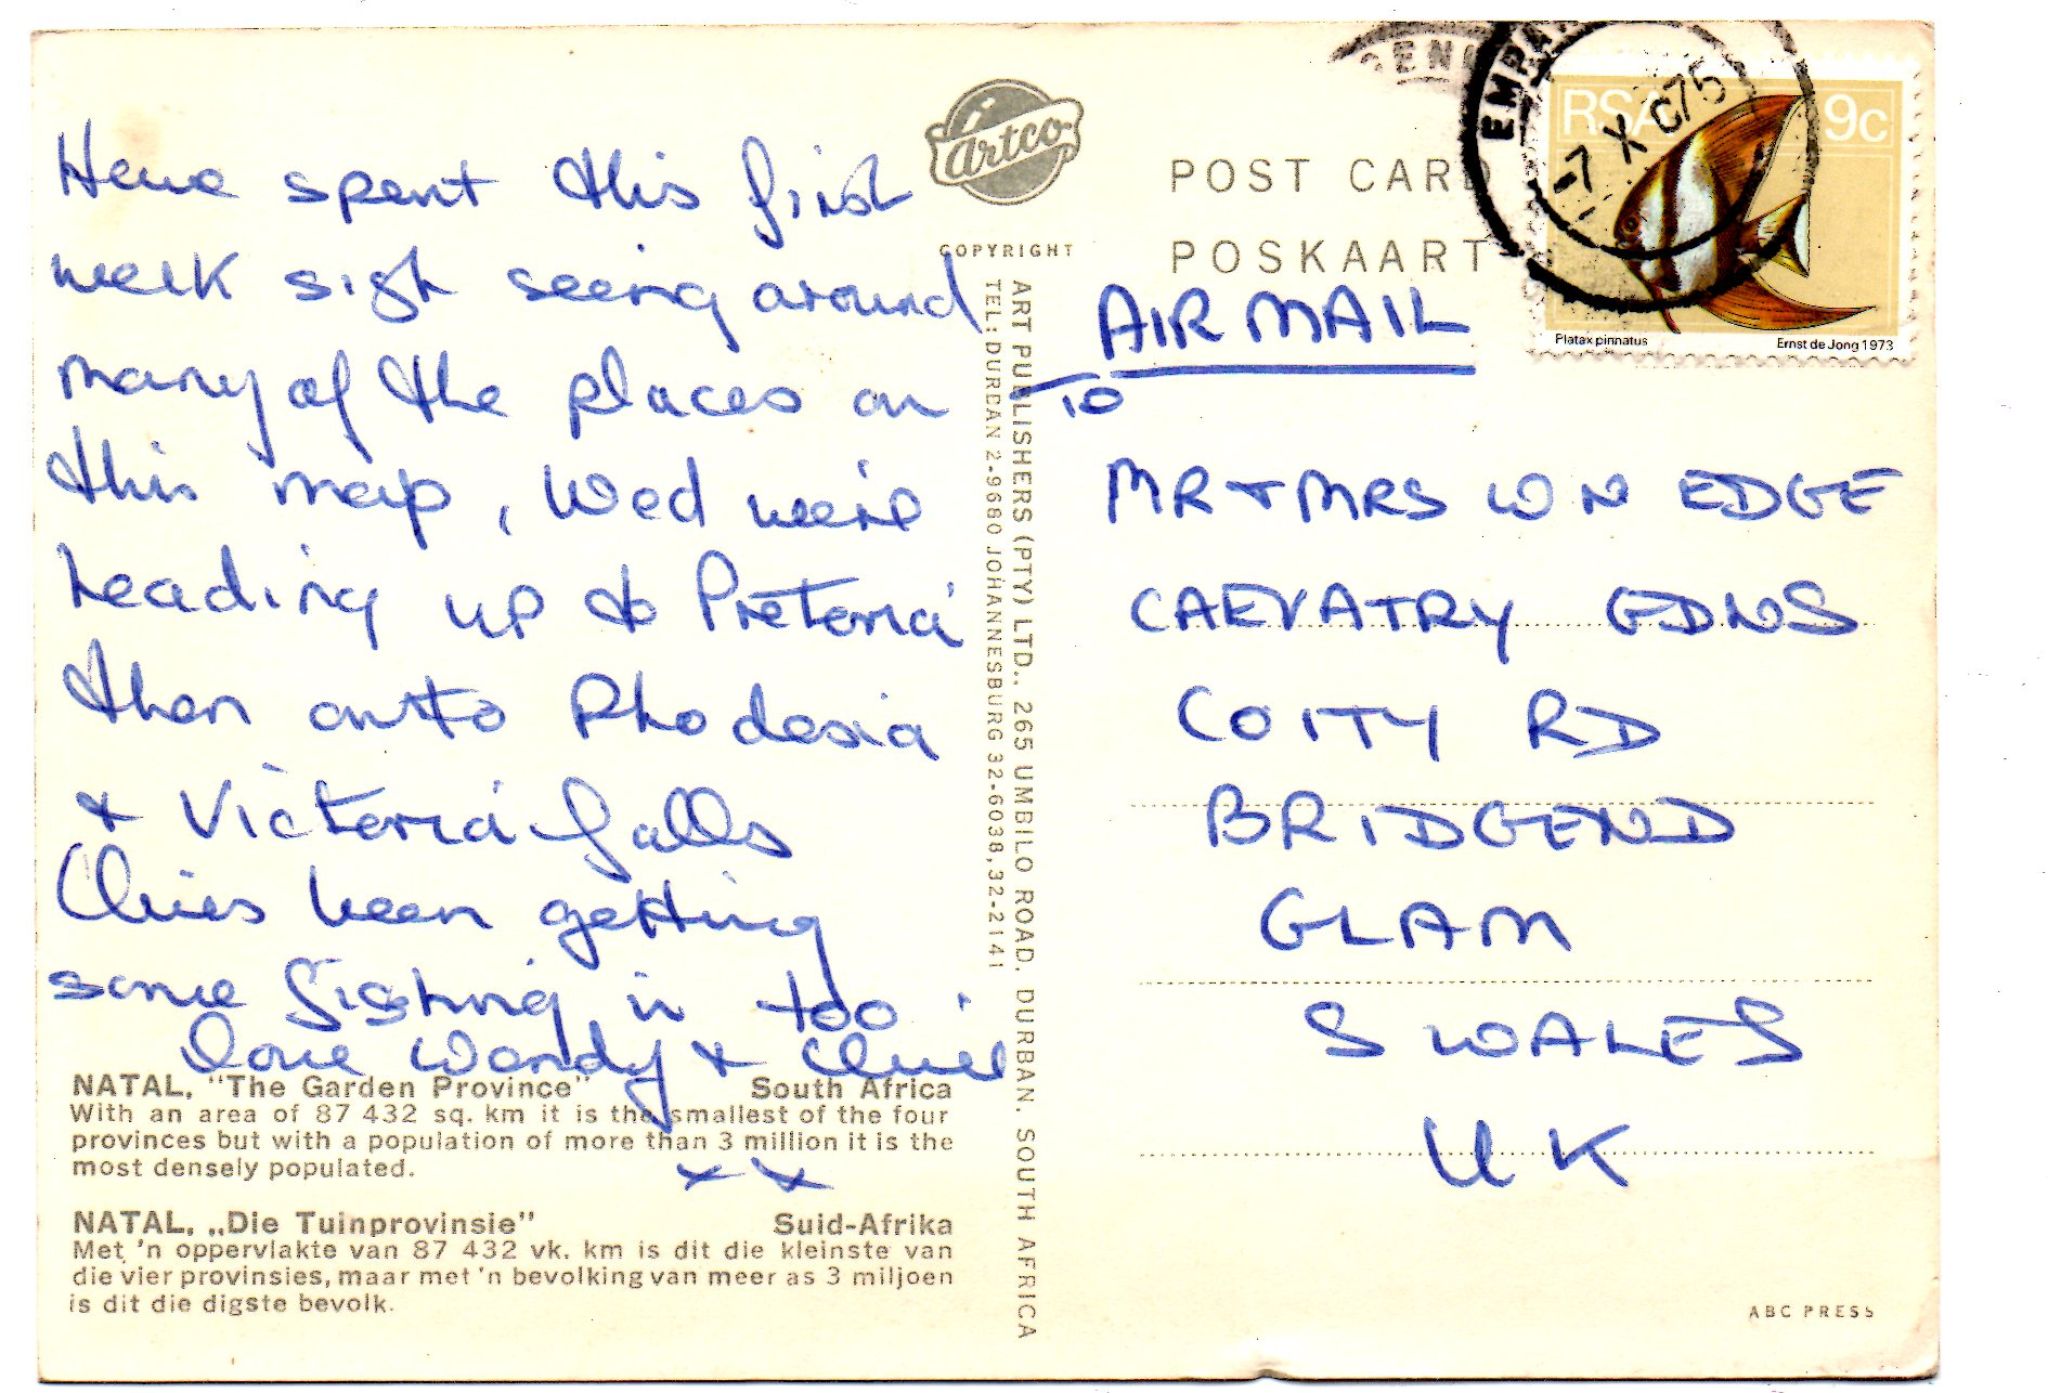 Have spent this first
week sigh seeing around
many of the places on
this map, Wed we're
heading up to Pretoria
then onto Rhodesia
& Victoria falls
Clives been getting
some fishing in too.
Love Wendy & Clive
xx
NATAL, "The Garden Province" South Africa
With an area of 87 432 sq. km it is the smallest of the four
provinces but with a population of more than 3 million it is the
most densely populated.
NATAL, „Die Tuinprovinsie" Suid-Afrika
Met 'n oppervlakte van 87 432 vk. km is dit die kleinste van
die vier provinsies, maar met 'n bevolking van meer as 3 miljoen
is dit die digste bevolk.
Artco
COPYRIGHT
ART PUBLISHERS (PTY) LTD., 265 UMBILO ROAD, DURBAN. SOUTH AFRICA
TEL: DURBAN 2-9680 JOHANNESBURG 32-6038, 32-2141
POST CARD
POSKAART
RSA 9c
-7 X 75
Platax pinnatus Ernst de Jong 1973
AIR MAIL
TO
MR + MRS W N EDGE
CAEVATRY GDNS
COITY RD
BRIDGEND
GLAM
S WALES
UK
ABC PRESS